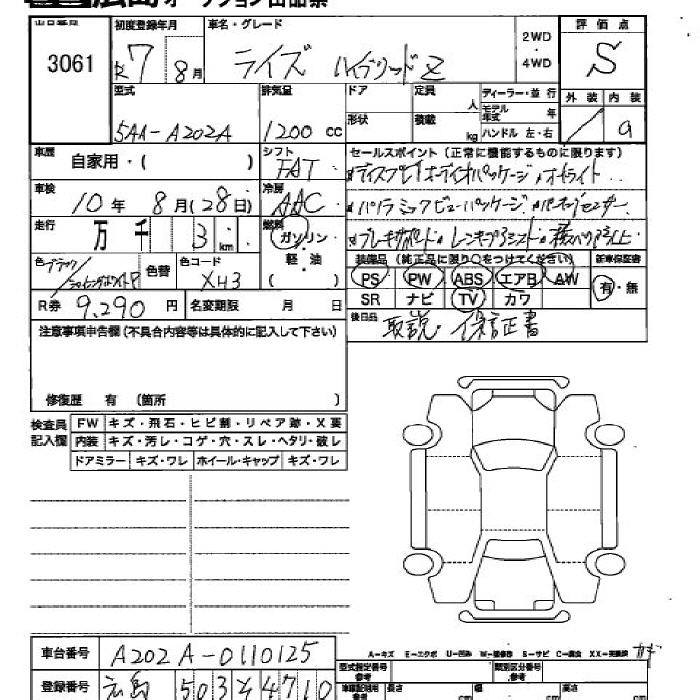 広島オークション出品票
出品番号 3061
初度登録年月 R7 8月
車名・グレード ライズ ハイブリッド Z
2WD・4WD
評価点 S
型式 5AA-A202A
排気量 1200 cc
ドア 形状
定員 人 積載 kg
ディーラー・並行
モデル年式 年
ハンドル 左・右
外装 内装 a
車歴 自家用・( )
シフト FAT
セールスポイント(正常に機能するものに限ります)
ディスプレイオーディオパッケージ オートライト
車検 10年 8月(28日)
冷房 AAC
パノラミックビューパッケージ
走行 万 千 3 km
燃料 ガソリン・軽油( )
装備品(純正品に限り○をつけてください) 新車保証書
色 ブラック/シャイニングホワイトP
色替
色コード XH3
PS PW ABS エアB AW 有・無
SR ナビ TV カワ
R券 9,290円 名変期限 月 日
後日品 取説・保証書
注意事項申告欄(不具合内容等は具体的に記入して下さい)
修復歴 有(箇所 )
検査員記入欄
FW キズ・飛石・ヒビ割・リペア跡・X要
内装 キズ・汚レ・コゲ・穴・スレ・ヘタリ・破レ
ドアミラー キズ・ワレ ホイール・キャップ キズ・ワレ
A-キズ E-エクボ U-凹み W-補修跡 S-サビ C-腐食 XX-交換済
車台番号 A202A-0110125
型式指定番号 参考
類別区分番号 参考
登録番号 広島 503 そ 4710
車庫証明用 参考 長さ cm 幅 cm 高さ cm